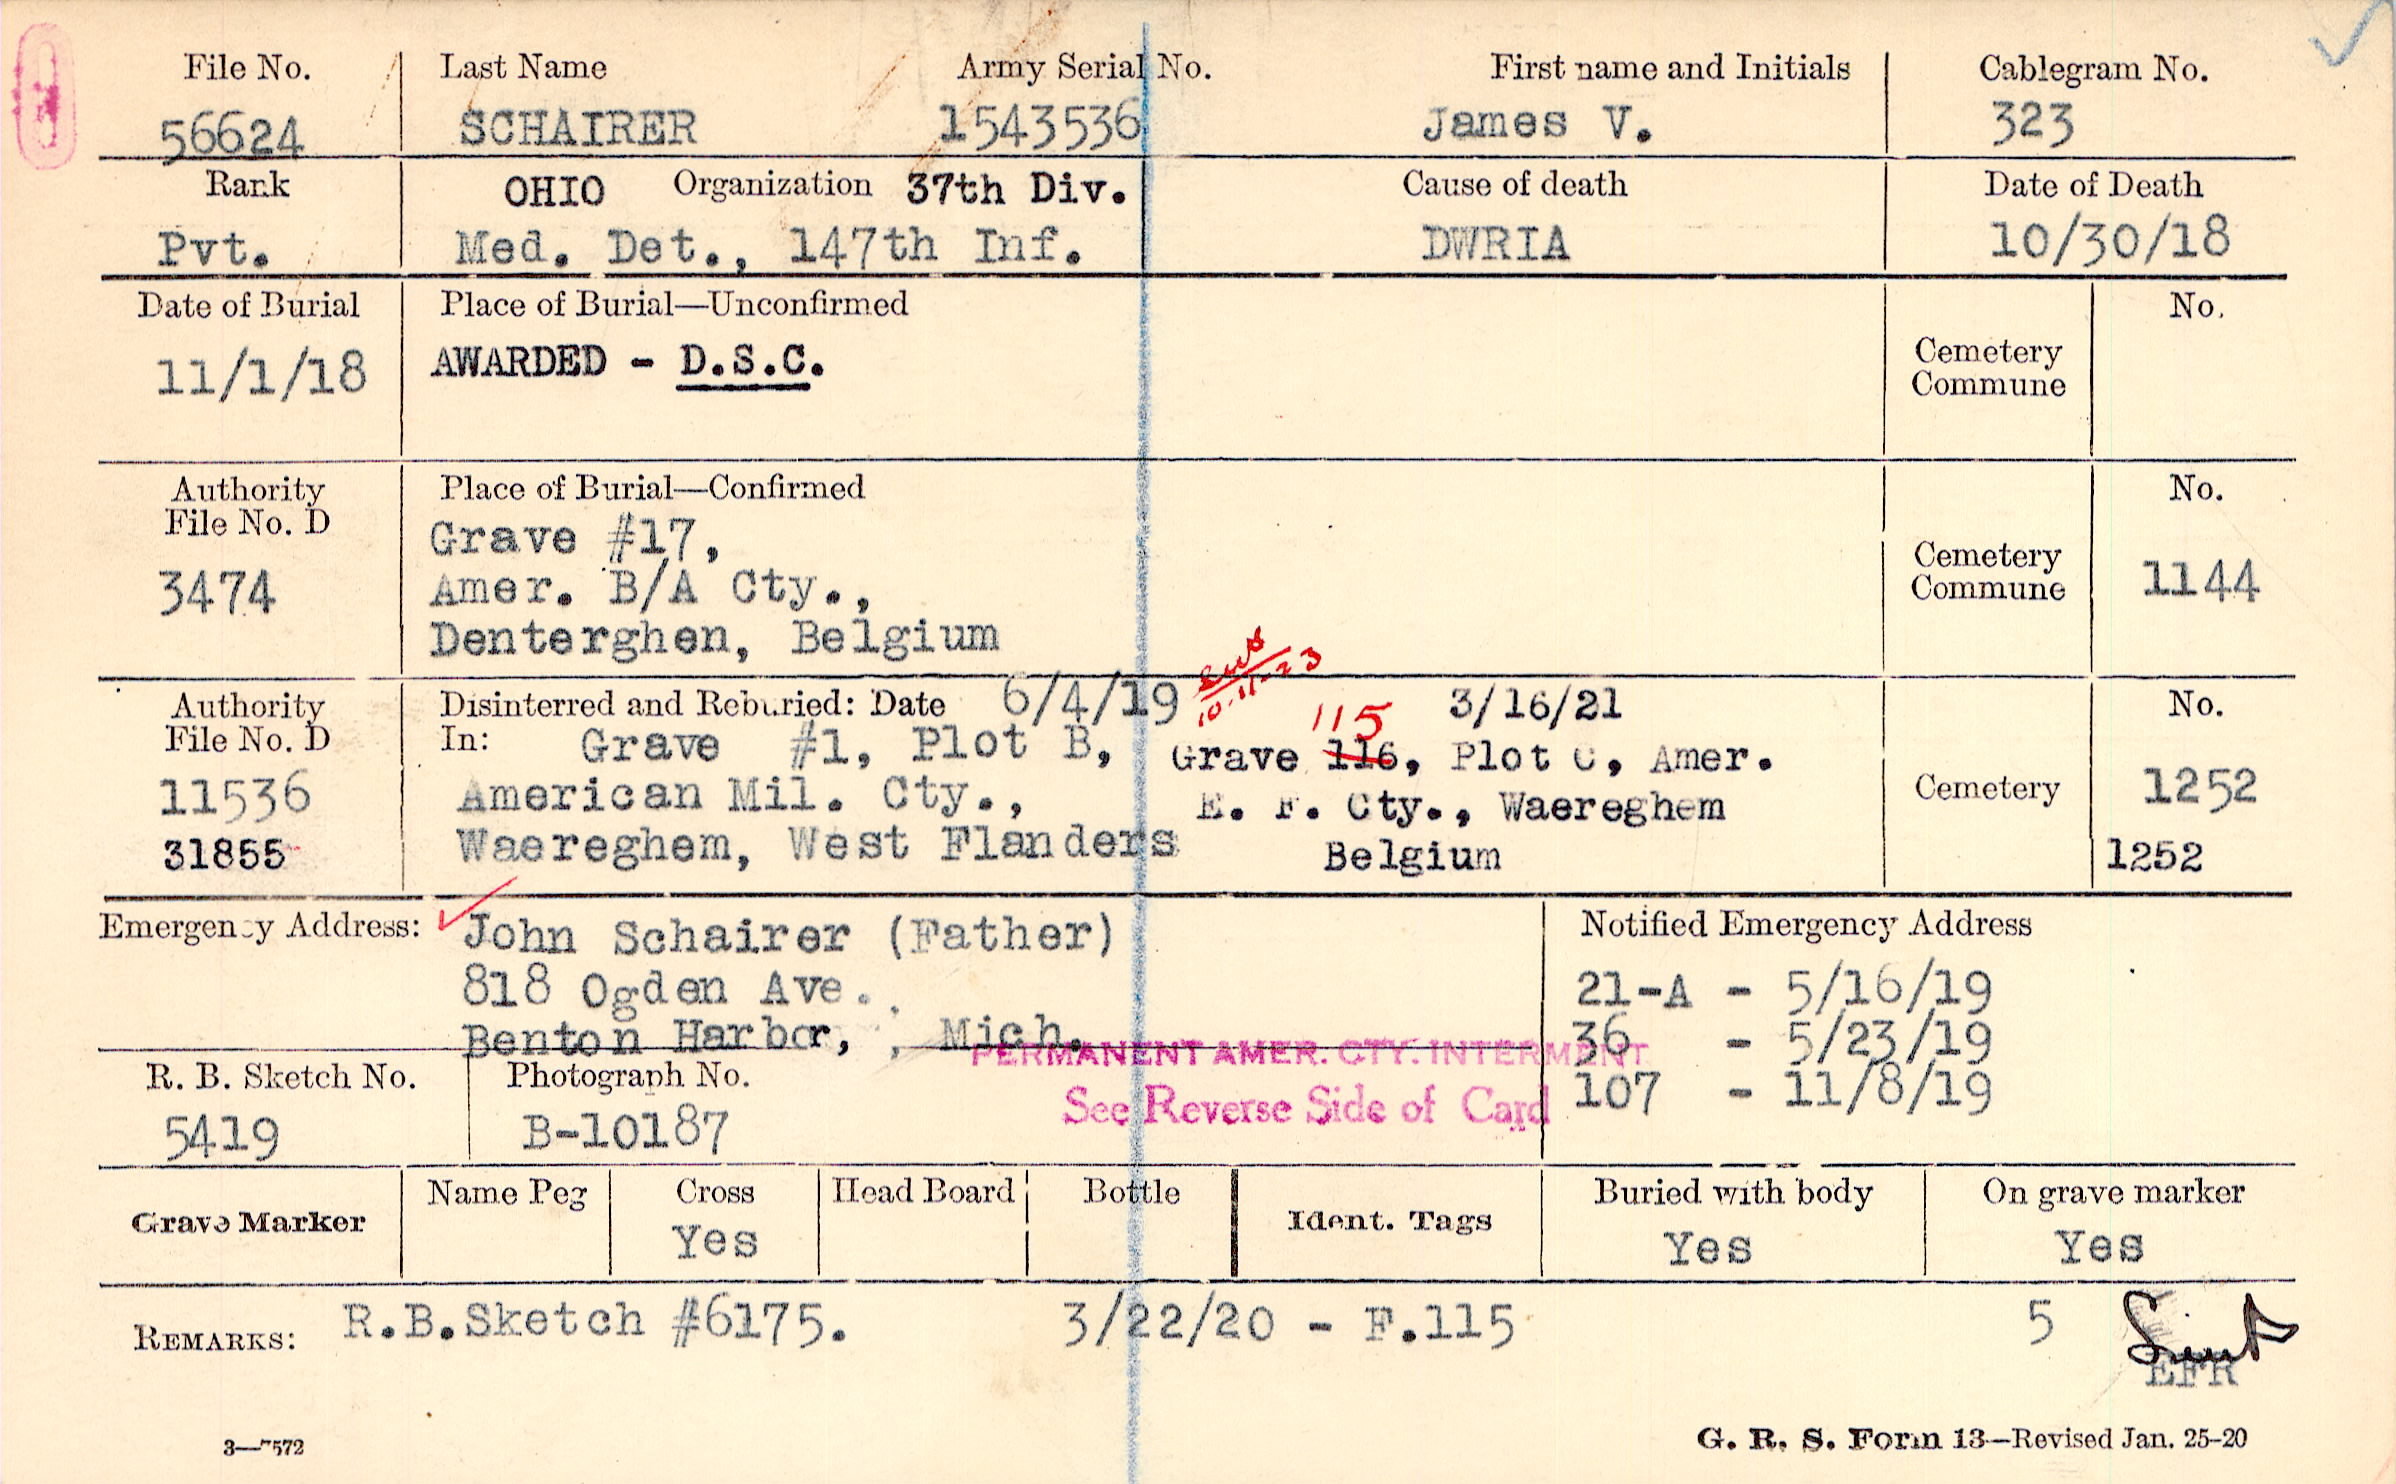 File No. Last Name Army Serial No. First name and Initials Cablegram No.
56624 SCHAIRER 1543536 James V. 323
Rank OHIO Organization 37th Div. Cause of death Date of Death
Pvt. Med. Det., 147th Inf. DWRIA 10/30/18
Date of Burial Place of Burial—Unconfirmed No.
11/1/18 AWARDED - D.S.C. Cemetery
Commune
Authority Place of Burial—Confirmed No.
File No. D
Grave #17,
3474 Amer. B/A Cty., Cemetery 1144
Commune
Denterghen, Belgium
10-11-23
Authority Disinterred and Reburied: Date 6/4/19 3/16/21 No.
File No. D In: Grave #1, Plot B, Grave 116, 115 Plot C, Amer.
11536 American Mil. Cty., E. F. Cty., Waereghem Cemetery 1252
31855 Waereghem, West Flanders Belgium 1252
Emergency Address: John Schairer (Father) Notified Emergency Address
818 Ogden Ave. 21-A - 5/16/19
Benton Harbor, Mich. 36 - 5/23/19
PERMANENT AMER. CTY. INTERMENT
R. B. Sketch No. Photograph No. See Reverse Side of Card 107 - 11/8/19
5419 B-10187
Grave Marker Name Peg Cross Head Board Bottle Ident. Tags Buried with body On grave marker
Yes Yes Yes
REMARKS: R.B.Sketch #6175. 3/22/20 - F.115 5
EFR
3—7572 G. R. S. Form 13—Revised Jan. 25-20